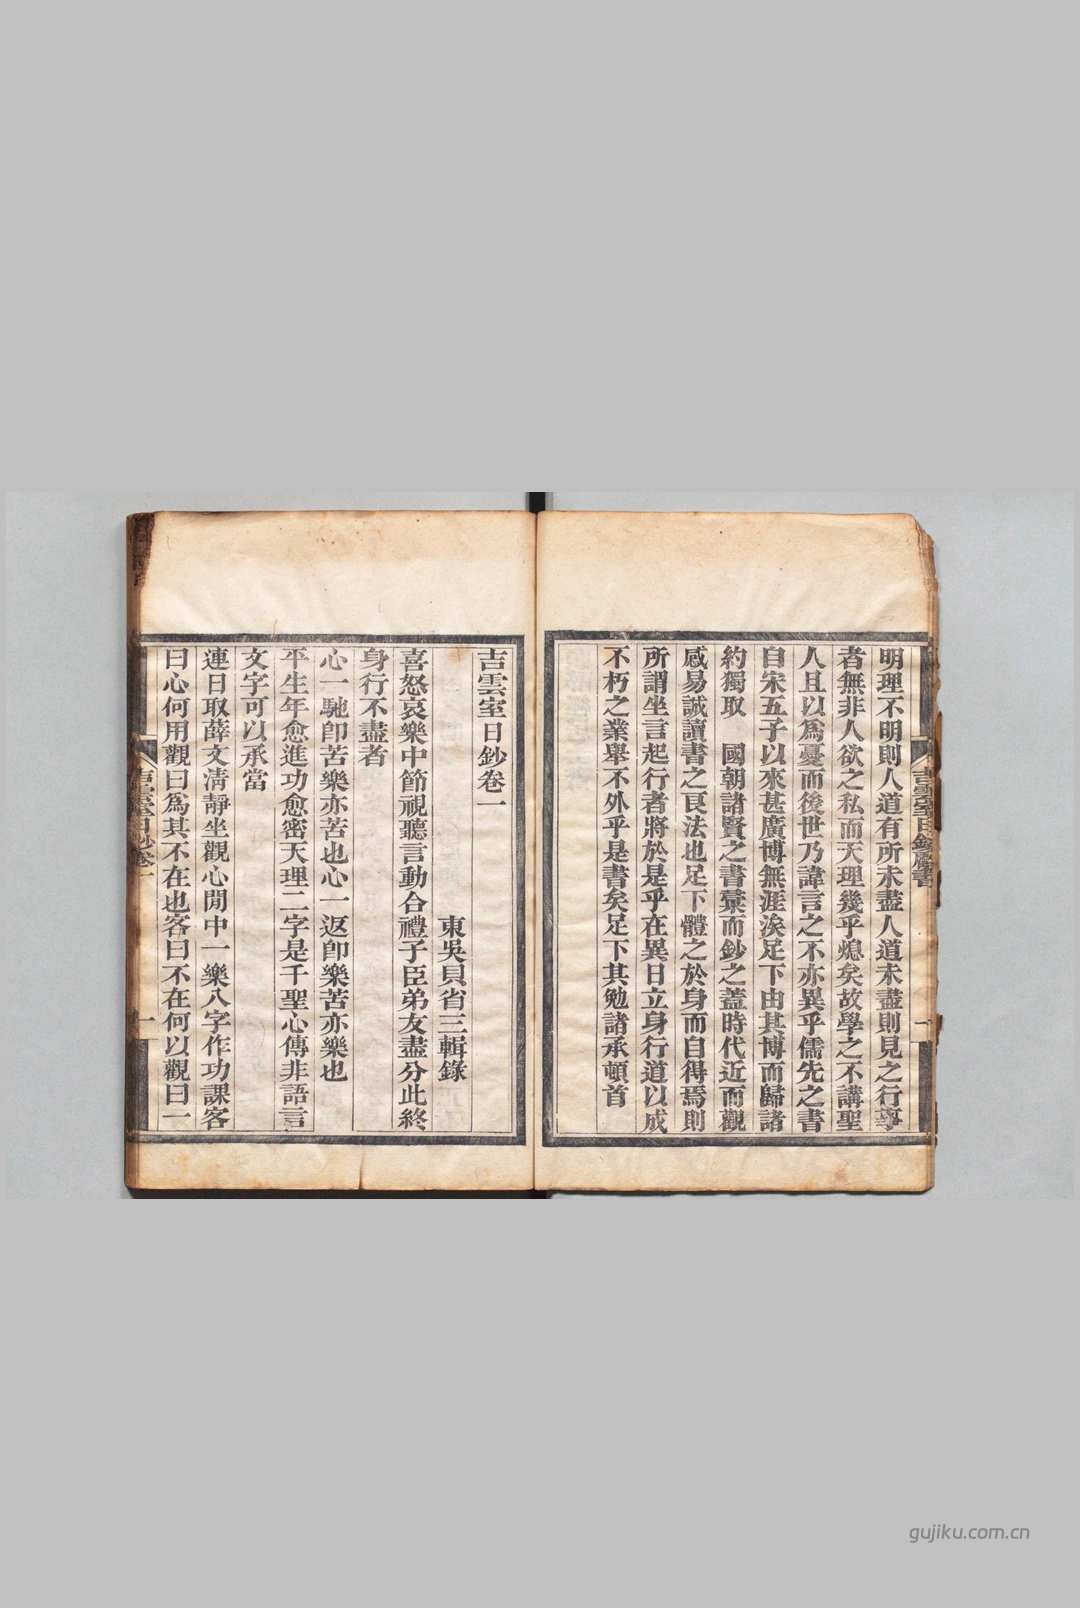 明理不明則人道有所未盡人道未盡則見之行事
者無非人欲之私而天理幾乎熄矣故學之不講聖
人且以爲憂而後世乃諱言之不亦異乎儒先之書
自宋五子以來甚廣博無涯涘足下由其博而歸諸
約獨取　國朝諸賢之書彙而鈔之蓋時代近而觀
感易誠讀書之良法也足下體之於身而自得焉則
所謂坐言起行者將於是乎在異日立身行道以成
不朽之業舉不外乎是書矣足下其勉諸承頓首
吉雲室日鈔卷一
東吳貝省三輯錄
喜怒哀樂中節視聽言動合禮子臣弟友盡分此終
身行不盡者
心一馳卽苦樂亦苦也心一返卽樂苦亦樂也
平生年愈進功愈密天理二字是千聖心傳非語言
文字可以承當
連日取薛文淸靜坐觀心閒中一樂八字作功課客
曰心何用觀曰爲其不在也客曰不在何以觀曰一
吉雲室日鈔卷一
一
gujiku.com.cn